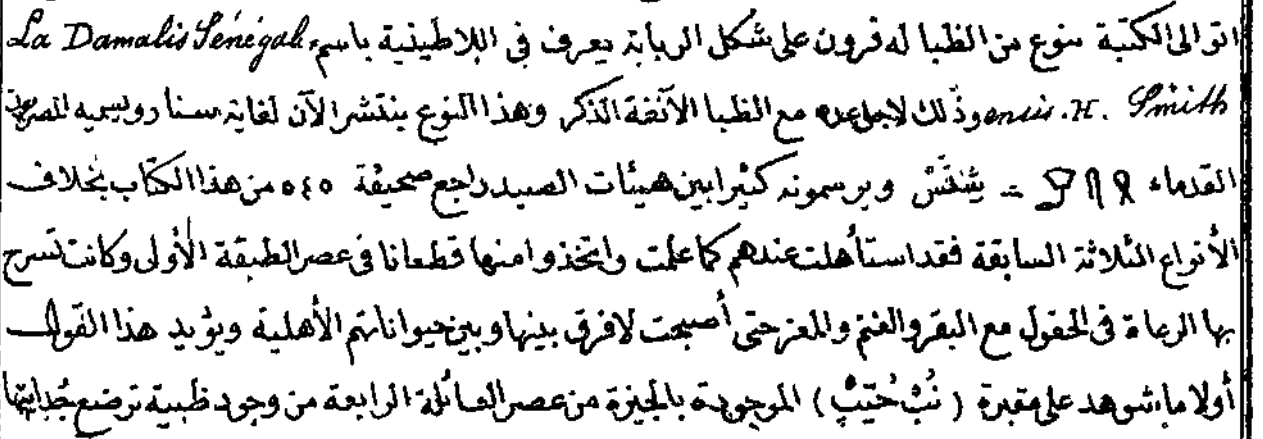 اتوا الى الكتبة بنوع من الظبا له قرون على شكل الربابة يعرف فى اللاطينية باسم La Damalis Sénégal
ensis. H. Smith وذلك لاجل عده مع الظبا الآنفة الذكر وهذا النوع ينتشر الآن لغاية سنار ويسميه المصريون
القدماء = شَسَّسْ ويرسمونه كثيرا بين هيئات الصيد راجع صحيفة ٥٤٥ من هذا الكتاب بخلاف
الأنواع الثلاثة السابقة فقد استأهلت عندهم كما علمت واتخذوا منها قطعانا فى عصر الطبقة الأولى وكانت تسرح
بها الرعاة فى الحقول مع البقر والغنم والمعز حتى أصبحت لا فرق بينها وبين حيواناتهم الأهلية ويؤيد هذا القول
أولا ما شوهد على مقبرة (نُبْ حُتَيبْ) الموجودة بالجيزة من عصر العائلة الرابعة من وجود ظبية ترضع جُدايتها